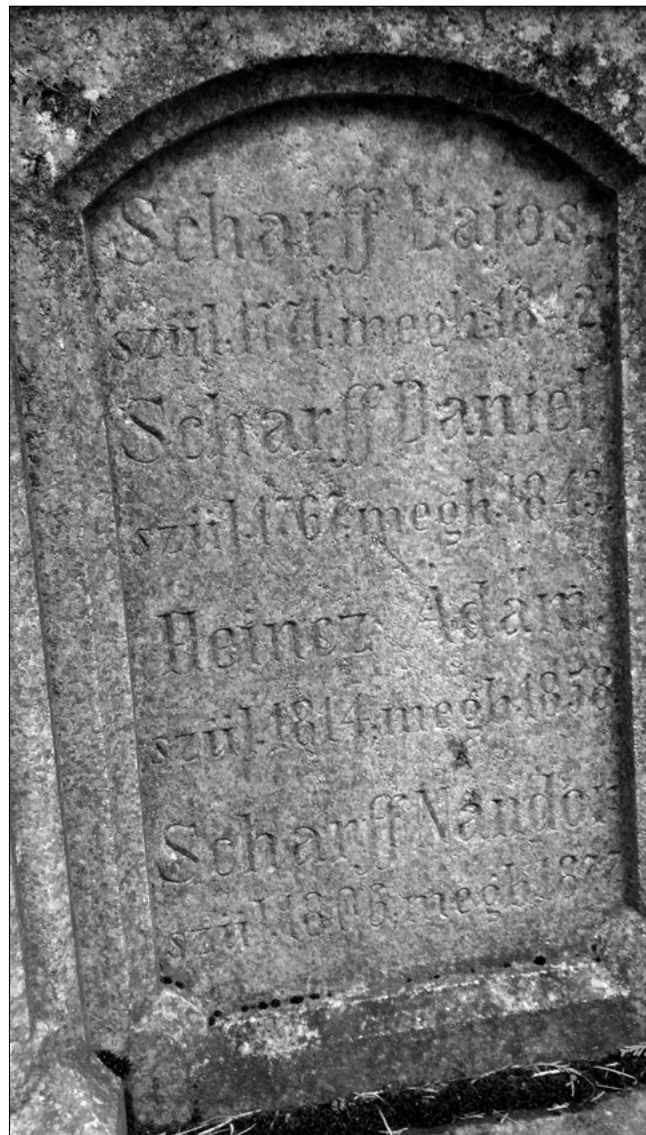 Scharff Lajos.
szül.1771.megh.1842.
Scharff Daniel.
szül.1767.megh.1843.
Heincz Ádám.
szül.1814.megh.1858.
Scharff Nándor
szül.1806.megh.1877